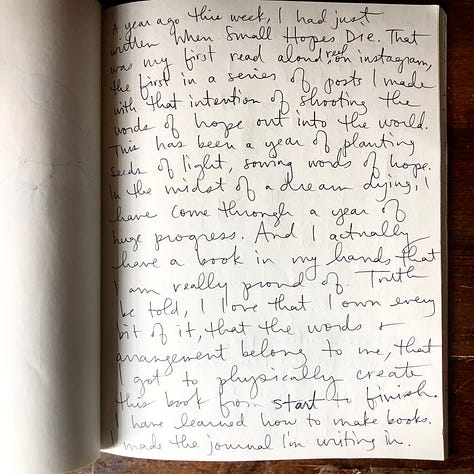 A year ago this week, I had just
written When Small Hopes Die. That
was my first read aloud reel on instagram,
the first in a series of posts I made
with that intention of shooting the
words of hope out into the world.
This has been a year of planting
seeds of light, sowing words of hope.
In the midst of a dream dying, I
have come through a year of
huge progress. And I actually
have a book in my hands that
I am really proud of. Truth
be told, I love that I own every
bit of it, that the words +
arrangement belong to me, that
I got to physically create
this book from start to finish.
I have learned how to make books.
I made the journal I'm writing in.